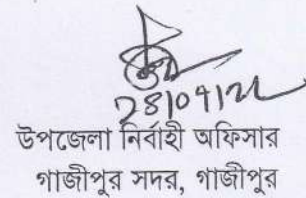 28/07/22
উপজেলা নির্বাহী অফিসার
গাজীপুর সদর, গাজীপুর